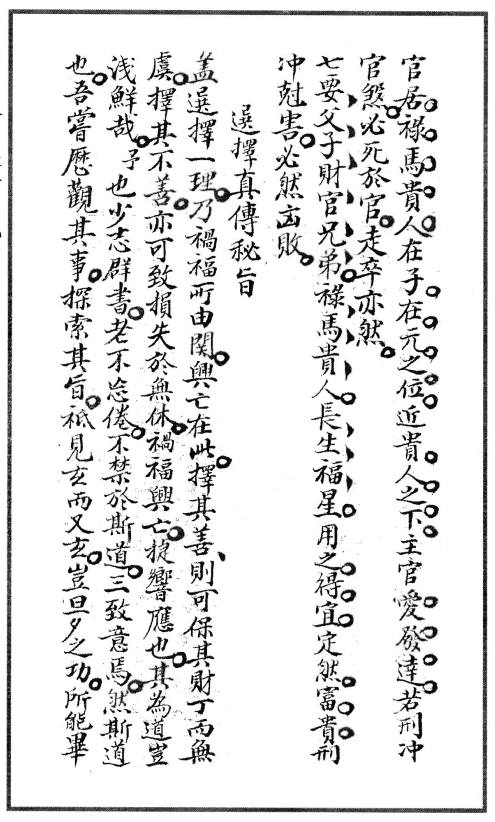 官居祿馬貴人在子在元之位近貴人之下主官愛發達若刑冲
官煞必死於官走卒亦然
七要父子財官兄弟祿馬貴人長生福星用之得宜定然富貴刑
冲尅害必然凶敗
選擇真傳秘旨
盖選擇一理乃禍福所由関興亡在此擇其善則可保其財丁而無
虞擇其不善亦可致損失於無休禍福興亡捷響應也其為道豈
浅鮮哉予也少志群書老不忘倦不禁於斯道三致意焉然斯道
也吾嘗歷觀其事探索其旨祗見玄而又玄豈旦夕之功所能畢